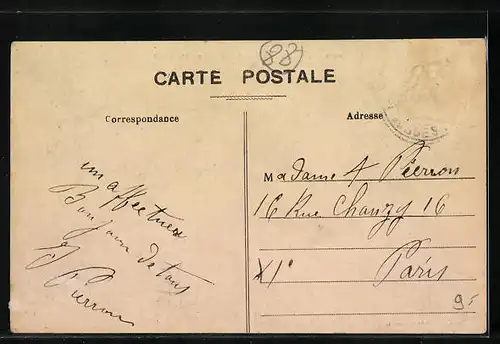 88
CARTE POSTALE
Correspondance
Adresse
un affectueux
Bonjour de tous
J Pierron
Madame A Pierron
16 Rue Chanzy 16
XIe Paris
9.-